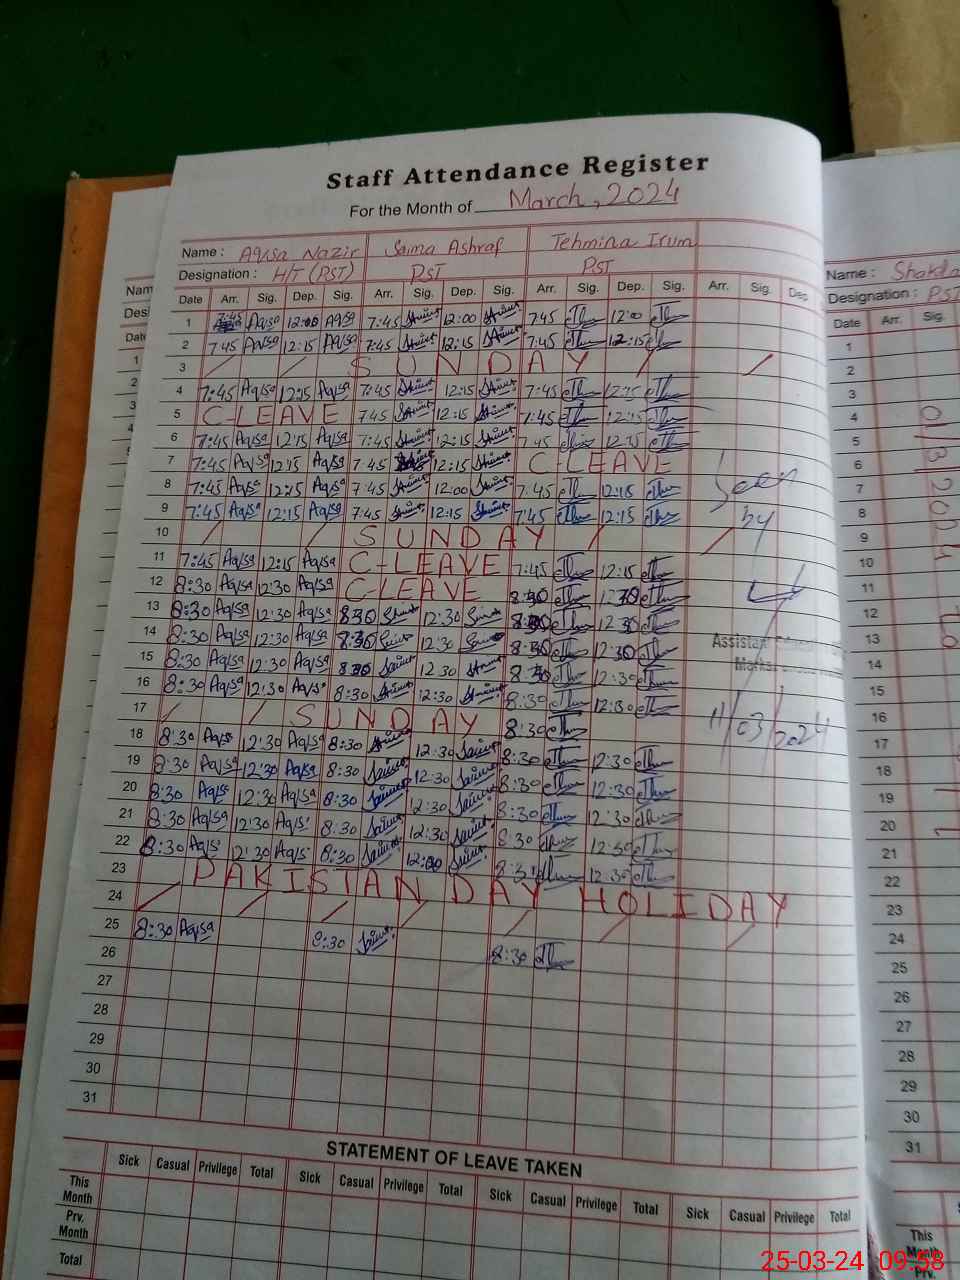 Staff Attendance Register
For the Month of March, 2024
Name : Aqsa Nazir Saima Ashraf Tehmina Irum
Designation : H/T (PST) PST PST
Date Arr. Sig. Dep. Sig. Arr. Sig. Dep. Sig. Arr. Sig. Dep. Sig. Arr. Sig. Dep
1 7:45 Aqsa 12:00 Aqsa 7:45 12:00 7:45 12:00
2 7:45 Aqsa 12:15 Aqsa 7:45 12:15 7:45 12:15
3 SUNDAY
4 7:45 Aqsa 12:15 Aqsa 7:45 12:15 7:45 12:15
5 C-LEAVE 7:45 12:15 7:45 12:15
6 7:45 Aqsa 12:15 Aqsa 7:45 12:15 7:45 12:15
7 7:45 Aqsa 12:15 Aqsa 7:45 12:15 C-LEAVE
8 7:45 Aqsa 12:15 Aqsa 7:45 12:00 7:45 12:15
9 7:45 Aqsa 12:15 Aqsa 7:45 12:15 7:45 12:15
Seen
by
10 SUNDAY
11 7:45 Aqsa 12:15 Aqsa C-LEAVE 7:45 12:15
12 8:30 Aqsa 12:30 Aqsa C-LEAVE 8:30 12:30
13 8:30 Aqsa 12:30 Aqsa 8:30 12:30 8:30 12:30
14 8:30 Aqsa 12:30 Aqsa 8:30 12:30 8:30 12:30
15 8:30 Aqsa 12:30 Aqsa 8:30 12:30 8:30 12:30
16 8:30 Aqsa 12:30 Aqsa 8:30 12:30 8:30 12:30
Assistant
11/03/2024
17 SUNDAY 8:30
18 8:30 Aqsa 12:30 Aqsa 8:30 12:30 8:30 12:30
19 8:30 Aqsa 12:30 Aqsa 8:30 12:30 8:30 12:30
20 8:30 Aqsa 12:30 Aqsa 8:30 12:30 8:30 12:30
21 8:30 Aqsa 12:30 Aqsa 8:30 12:30 8:30 12:30
22 8:30 Aqsa 12:30 Aqsa 8:30 12:00 8:30 12:30
23 PAKISTAN DAY HOLIDAY
24
25 8:30 Aqsa 8:30
26 8:30
27
28
29
30
31
STATEMENT OF LEAVE TAKEN
Sick Casual Privilege Total Sick Casual Privilege Total Sick Casual Privilege Total Sick Casual Privilege Total
This Month
Prv. Month
Total
Name :
Designation : PST
Date Arr. Sig.
1
2
3
4
5
6
7
8
9
10
11
12
13
14
15
16
17
18
19
20
21
22
23
24
25
26
27
28
29
30
31
This
Month
Prv.
25-03-24 09:58